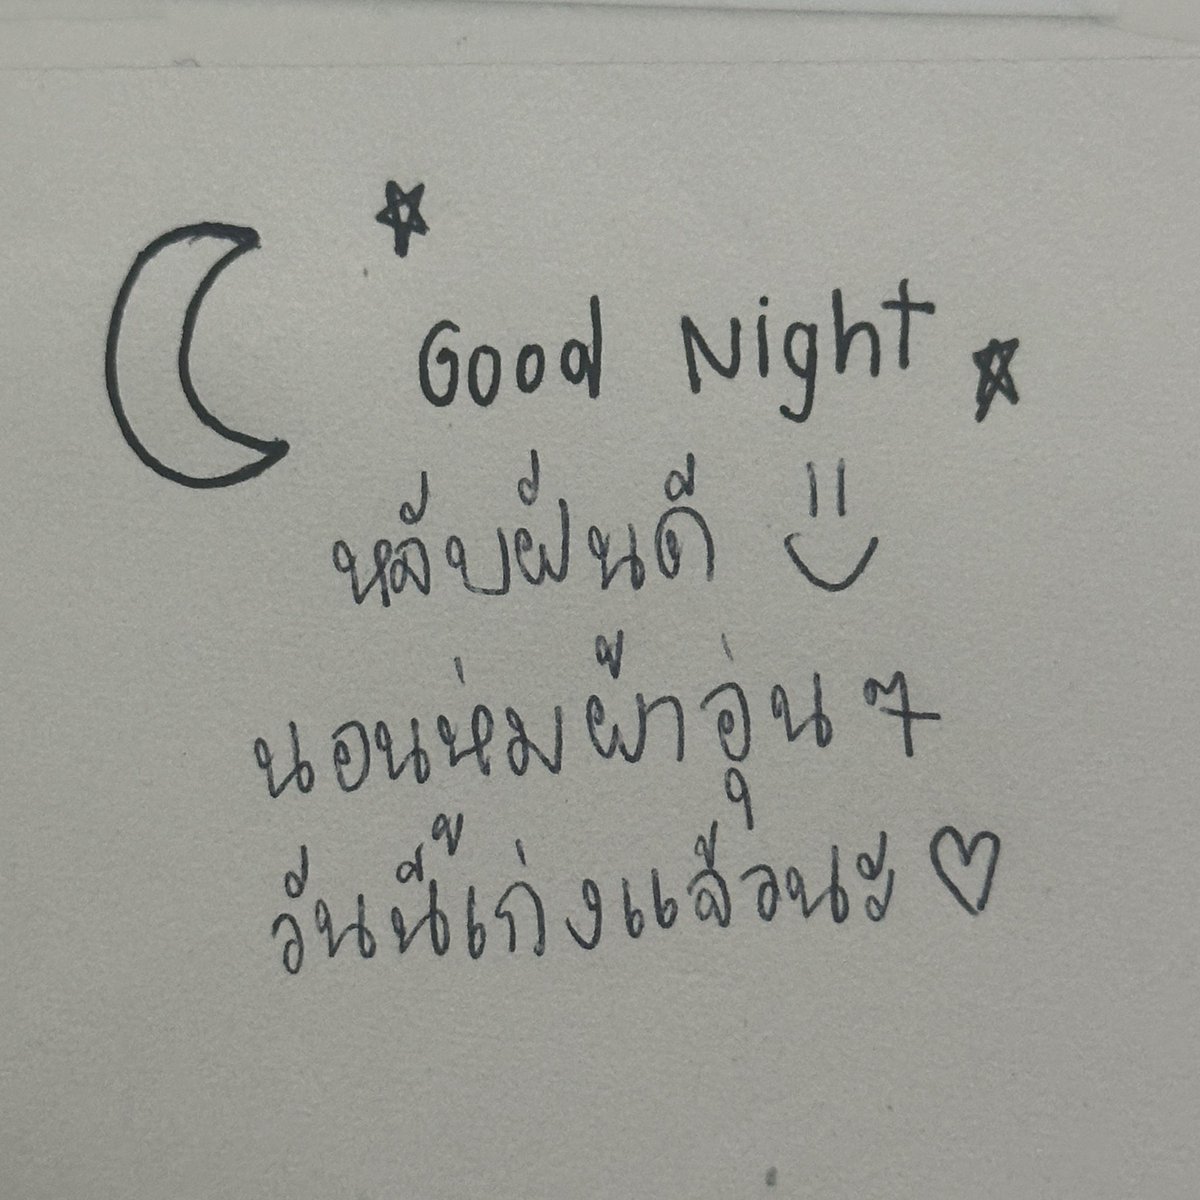 Good Night
หลับฝันดี
นอนห่มผ้าอุ่นๆ
วันนี้เก่งแล้วนะ